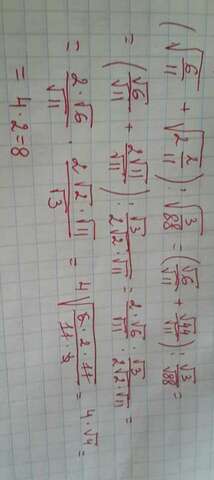 (√(6/11) + √(2 2/11)) : √(3/88) = (√6/√11 + √44/√11) : √3/√88 =
= (√6/√11 + 2√11/√11) : √3/(2√2·√11) = 2·√6/√11 : √3/(2√2·√11) =
= 2·√6/√11 · 2√2·√11/√3 = 4√(6·2·11/(11·3)) = 4·√4 =
= 4·2=8